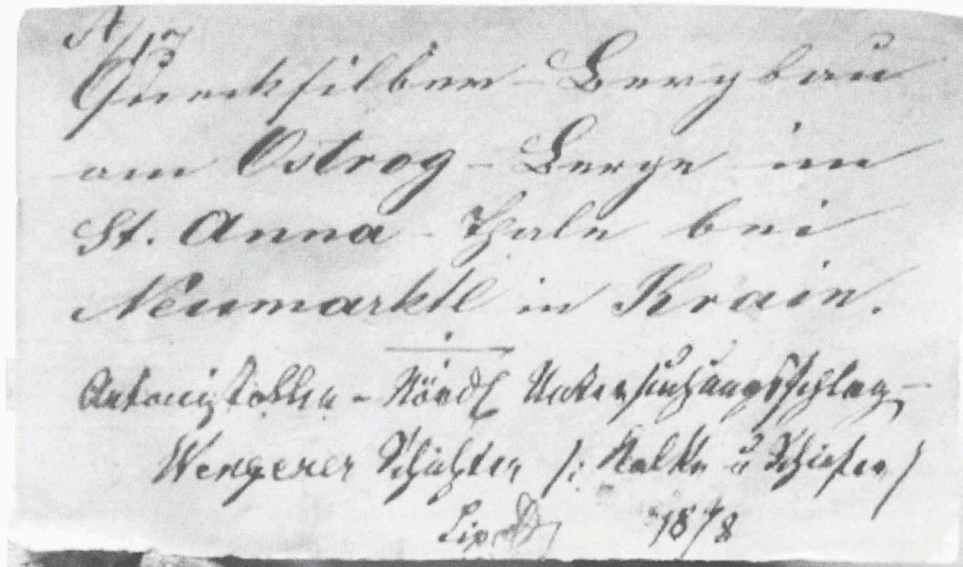 A/17
Quecksilber-Bergbau
am Ostrog-Berge im
St. Anna-Thale bei
Neumarktl in Krain.
Antonistollen - Nördl. Untersuchungsschlag -
Wengener Schichten /: Kalke u Schiefer /
Lipold 1878